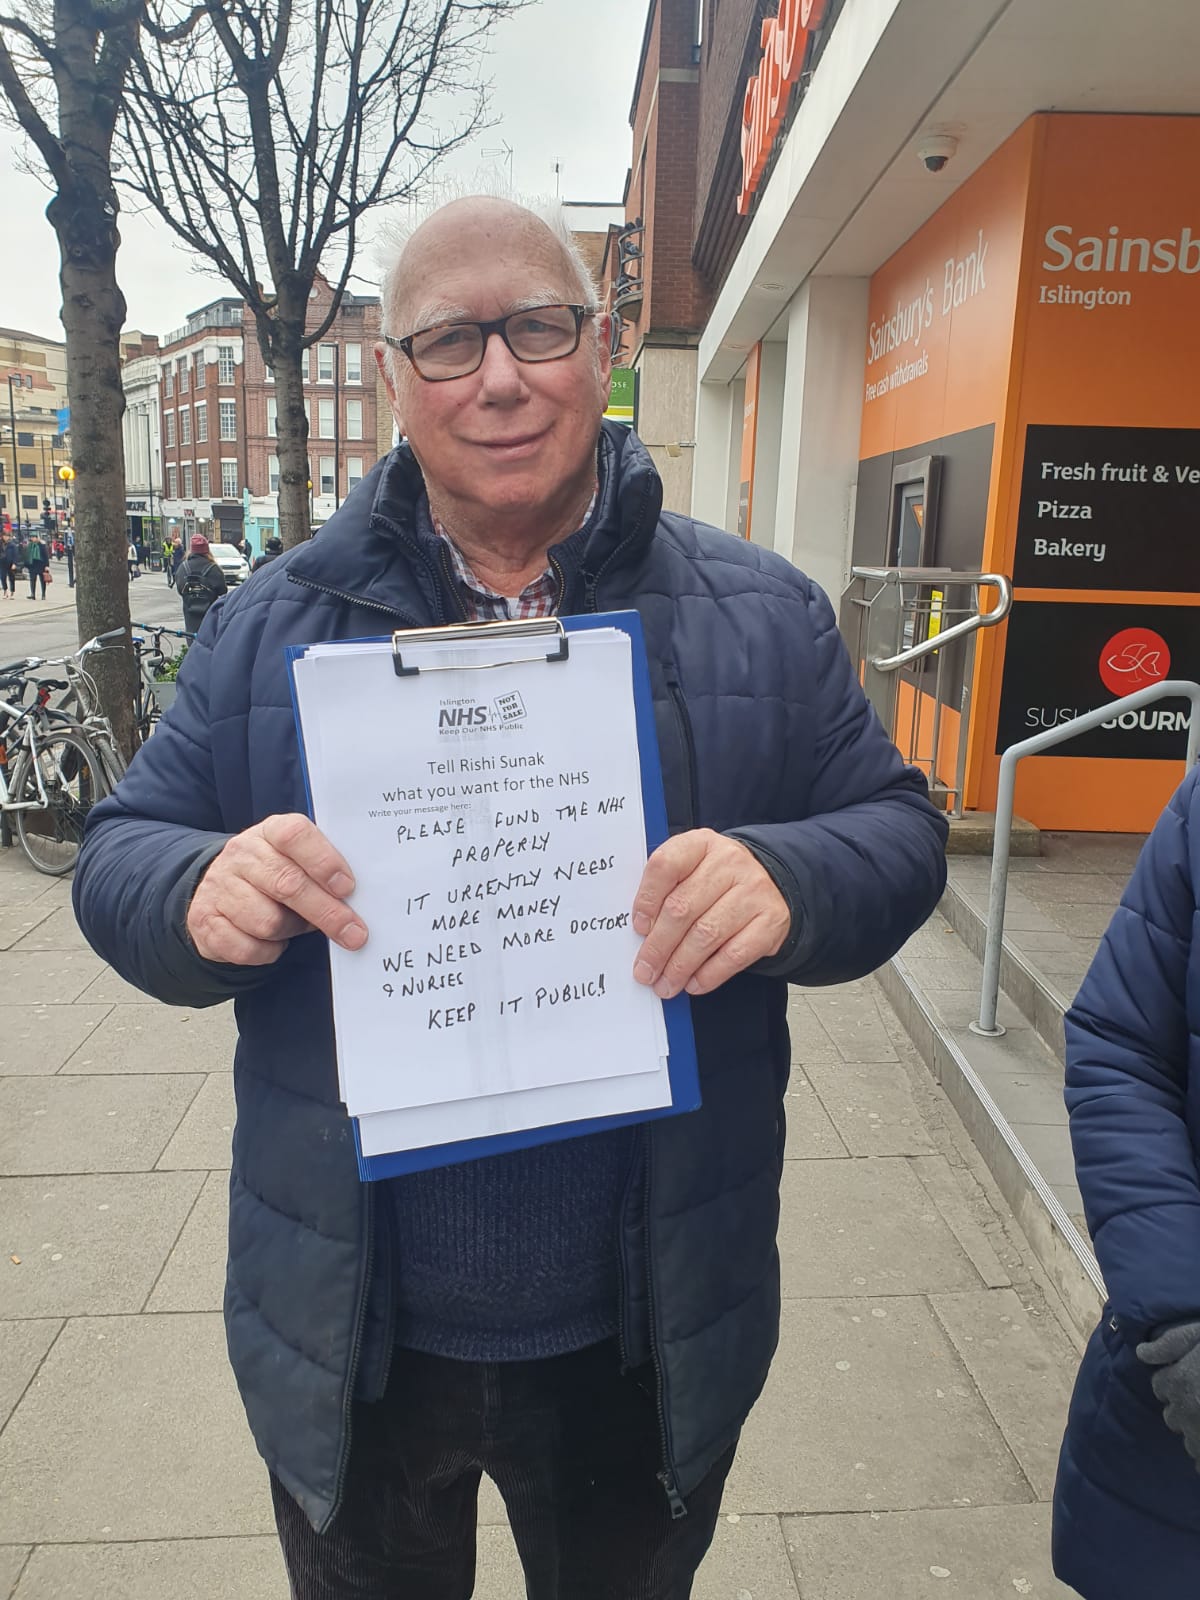 Sainsb
Sainsbury's Bank
Free cash withdrawals
Sainsb
Islington
Fresh fruit & Ve
Pizza
Bakery
SUSHI GOURM
Islington
NHS
NOT
FOR
SALE
Keep Our NHS Public
Tell Rishi Sunak
what you want for the NHS
Write your message here:
PLEASE FUND THE NHS
PROPERLY
IT URGENTLY NEEDS
MORE MONEY
WE NEED MORE DOCTORS
& NURSES
KEEP IT PUBLIC!!